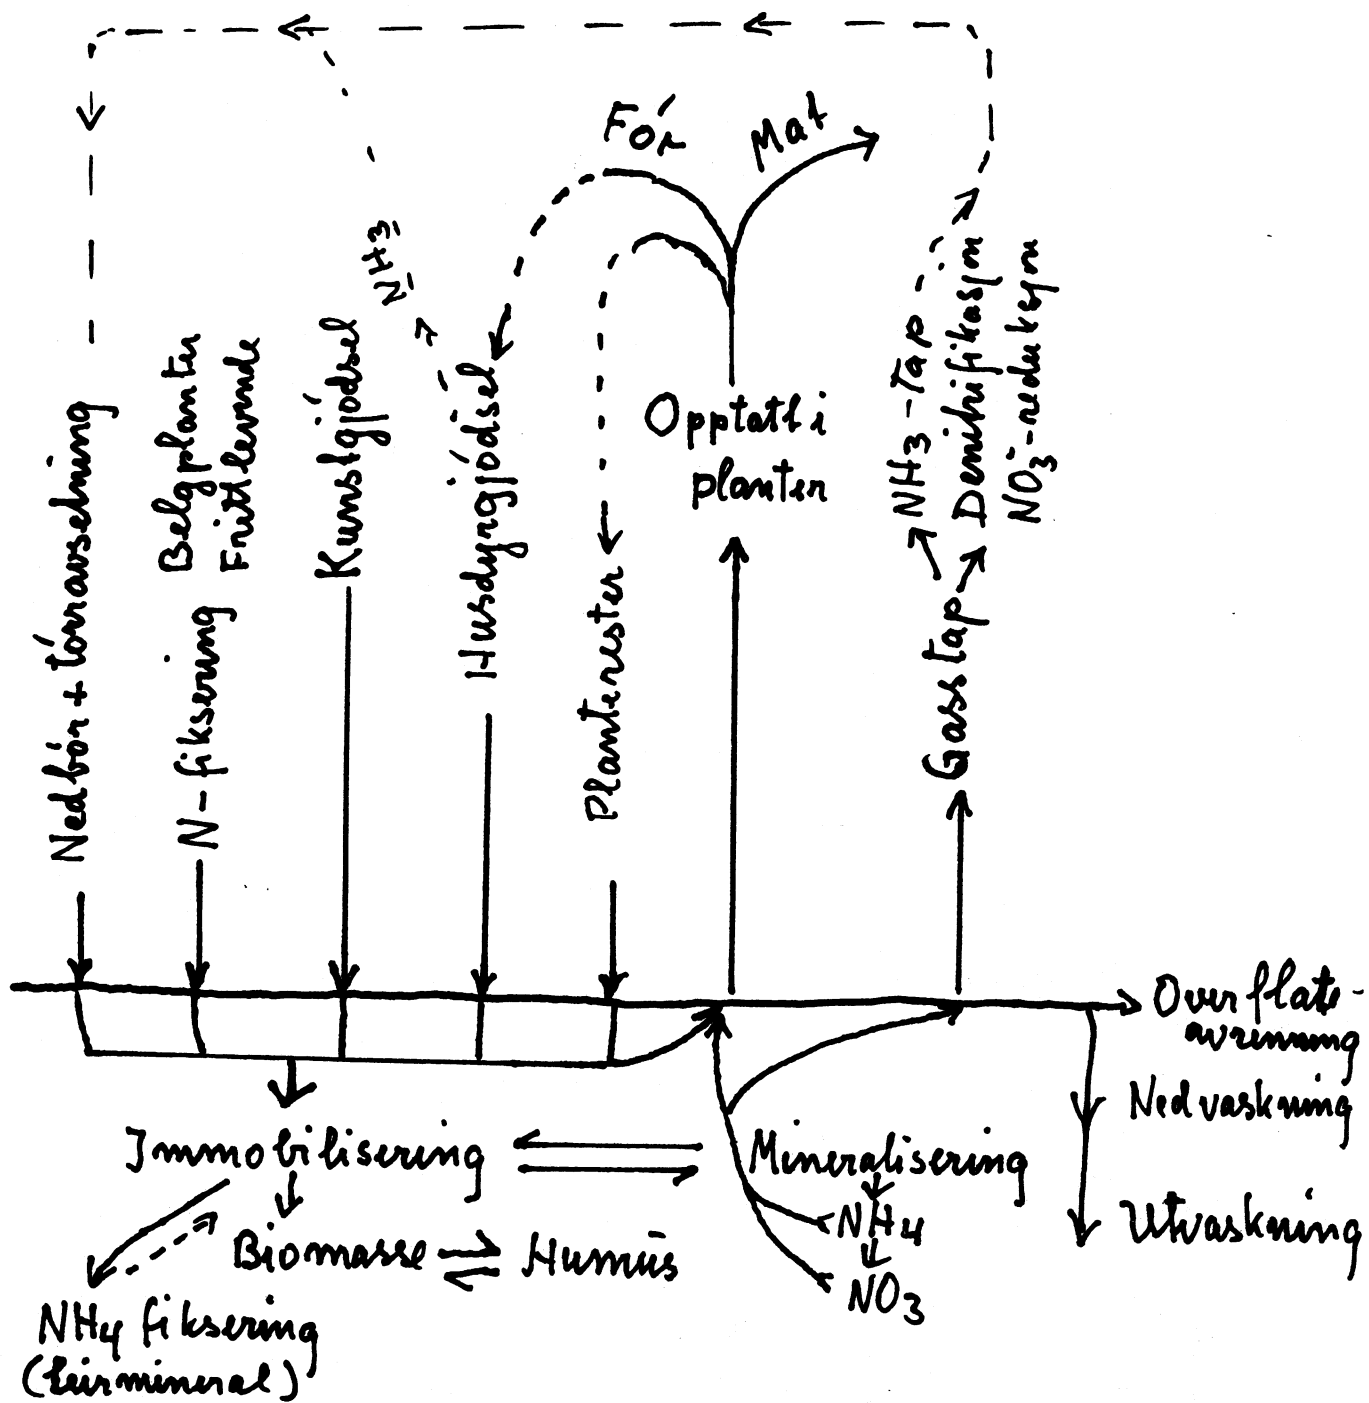 Fór
Mat
NH3
Nedbór + tórravsetning
Belgplanter
Frittlevende
N-fiksering
Kunstgjódsel
Husdyrgjódsel
Planterester
Opptatt i
planter
NH3-tap
Denitrifikasjon
NO3-reduksjon
Gasstap
Overflate-
avrenning
Nedvaskning
Utvaskning
Immobilisering
Mineralisering
NH4
NO3
Biomasse
Humus
NH4 fiksering
(leirmineral)